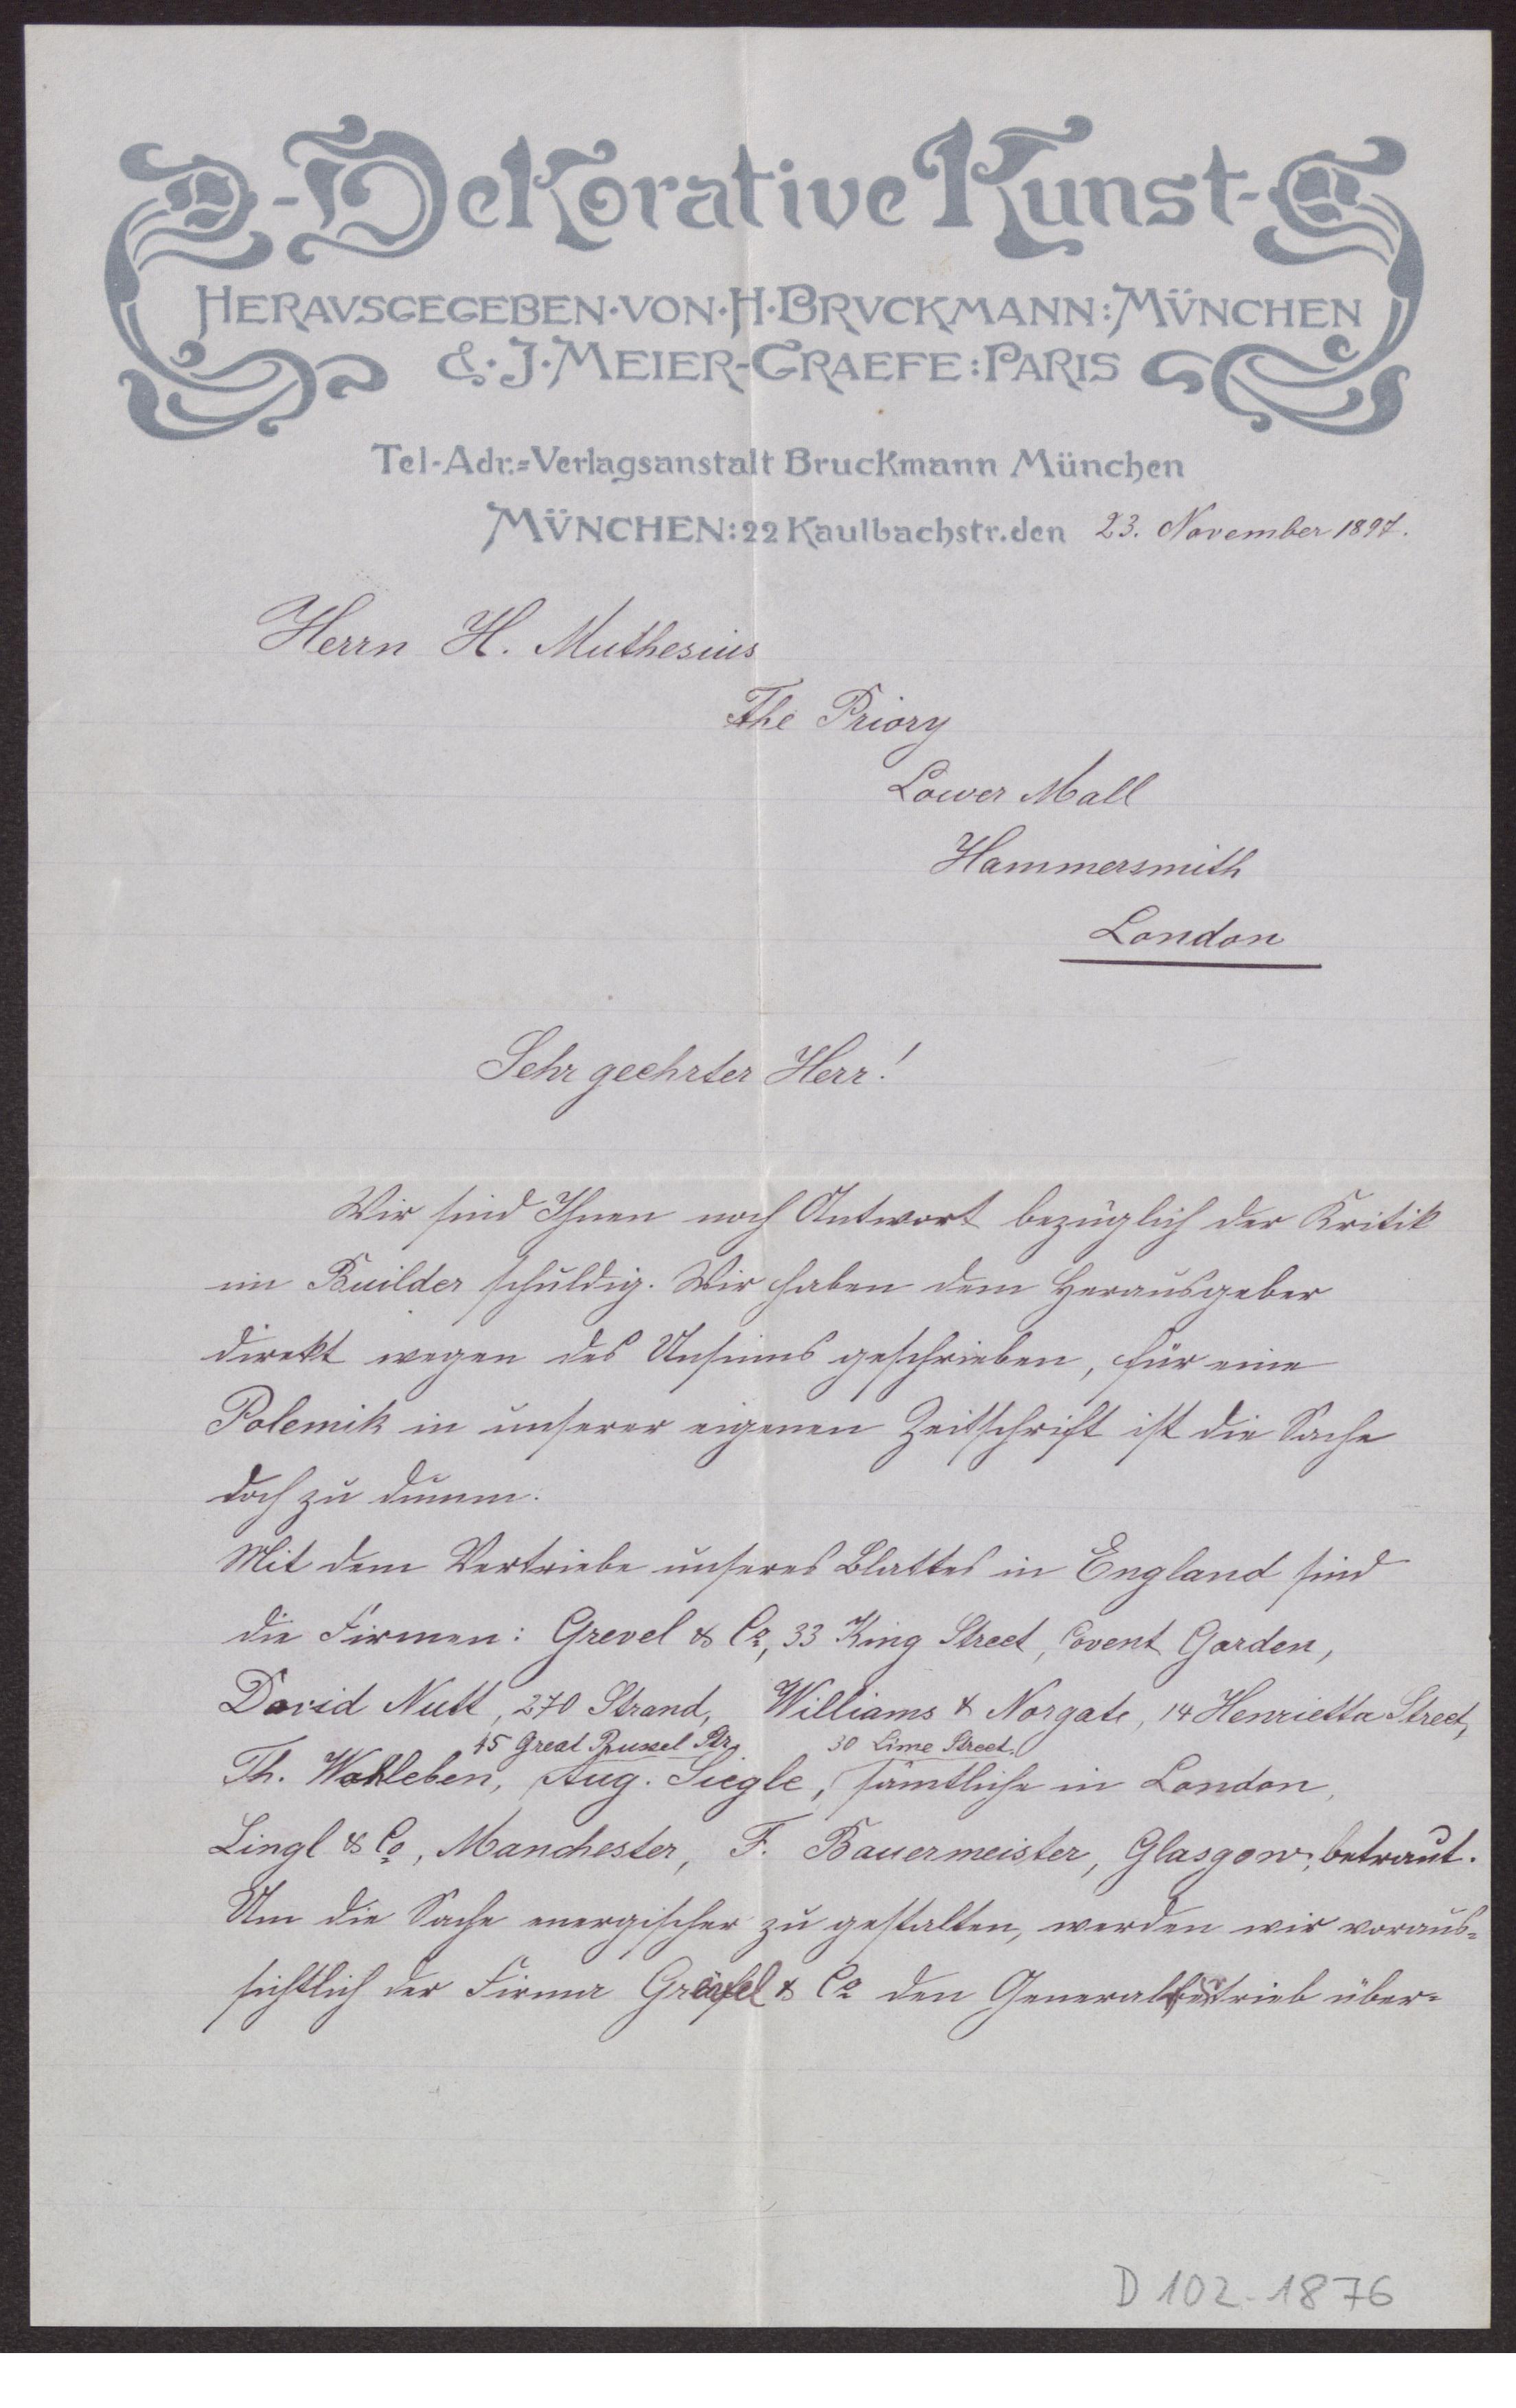 Dekorative Kunst
HERAVSGEGEBEN·VON·H·BRVCKMANN:MÜNCHEN
&·J·MEIER-GRAEFE:PARIS
Tel-Adr.=Verlagsanstalt Bruckmann München
MÜNCHEN:22 Kaulbachstr.den 23. November 1897.
Herrn H. Muthesius
The Priory
Lower Mall
Hammersmith
London
Sehr geehrter Herr!
Wir sind Ihnen noch Antwort bezüglich der Kritik
im Builder schuldig. Wir haben dem Herausgeber
direkt wegen des Unsinns geschrieben, für eine
Polemik in unserer eigenen Zeitschrift ist die Sache
doch zu dumm.
Mit dem Vertriebe unseres Blattes in England sind
die Firmen: Grevel & Co, 33 King Street, Covent Garden,
David Nutt, 270 Strand, Williams & Norgate, 14 Henrietta Street,
45 Great Russel Str. 30 Lime Street.
Th. Wohlleben, Aug. Siegle, sämtliche in London,
Lingl & Co, Manchester, F. Bauermeister, Glasgow, betraut.
Um die Sache energischer zu gestalten, werden wir voraus=
sichtlich der Firma & Co den Generalvertrieb über=
D 102-1876